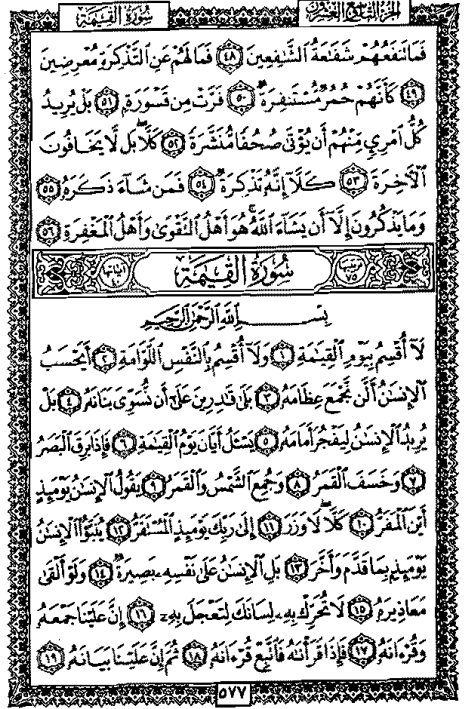 الجزء التاسع والعشرون
سُورَةُ القِيَٰمَة
فَمَا تَنفَعُهُمْ شَفَٰعَةُ ٱلشَّٰفِعِينَ ٤٨ فَمَا لَهُمْ عَنِ ٱلتَّذْكِرَةِ مُعْرِضِينَ
٤٩ كَأَنَّهُمْ حُمُرٌ مُّسْتَنفِرَةٌ ٥٠ فَرَّتْ مِن قَسْوَرَةٍۭ ٥١ بَلْ يُرِيدُ
كُلُّ ٱمْرِئٍ مِّنْهُمْ أَن يُؤْتَىٰ صُحُفًا مُّنَشَّرَةً ٥٢ كَلَّا ۖ بَل لَّا يَخَافُونَ
ٱلْأٓخِرَةَ ٥٣ كَلَّآ إِنَّهُۥ تَذْكِرَةٌ ٥٤ فَمَن شَآءَ ذَكَرَهُۥ ٥٥
وَمَا يَذْكُرُونَ إِلَّآ أَن يَشَآءَ ٱللَّهُ ۚ هُوَ أَهْلُ ٱلتَّقْوَىٰ وَأَهْلُ ٱلْمَغْفِرَةِ ٥٦
ترتيبها ٧٥ سُورَةُ القِيَٰمَة آياتها ٤٠
بِسْمِ ٱللَّهِ ٱلرَّحْمَٰنِ ٱلرَّحِيمِ
لَآ أُقْسِمُ بِيَوْمِ ٱلْقِيَٰمَةِ ١ وَلَآ أُقْسِمُ بِٱلنَّفْسِ ٱللَّوَّامَةِ ٢ أَيَحْسَبُ
ٱلْإِنسَٰنُ أَلَّن نَّجْمَعَ عِظَامَهُۥ ٣ بَلَىٰ قَٰدِرِينَ عَلَىٰٓ أَن نُّسَوِّيَ بَنَانَهُۥ ٤ بَلْ
يُرِيدُ ٱلْإِنسَٰنُ لِيَفْجُرَ أَمَامَهُۥ ٥ يَسْـَٔلُ أَيَّانَ يَوْمُ ٱلْقِيَٰمَةِ ٦ فَإِذَا بَرِقَ ٱلْبَصَرُ
٧ وَخَسَفَ ٱلْقَمَرُ ٨ وَجُمِعَ ٱلشَّمْسُ وَٱلْقَمَرُ ٩ يَقُولُ ٱلْإِنسَٰنُ يَوْمَئِذٍ
أَيْنَ ٱلْمَفَرُّ ١٠ كَلَّا لَا وَزَرَ ١١ إِلَىٰ رَبِّكَ يَوْمَئِذٍ ٱلْمُسْتَقَرُّ ١٢ يُنَبَّؤُا۟ ٱلْإِنسَٰنُ
يَوْمَئِذٍۭ بِمَا قَدَّمَ وَأَخَّرَ ١٣ بَلِ ٱلْإِنسَٰنُ عَلَىٰ نَفْسِهِۦ بَصِيرَةٌ ١٤ وَلَوْ أَلْقَىٰ
مَعَاذِيرَهُۥ ١٥ لَا تُحَرِّكْ بِهِۦ لِسَانَكَ لِتَعْجَلَ بِهِۦٓ ١٦ إِنَّ عَلَيْنَا جَمْعَهُۥ
وَقُرْءَانَهُۥ ١٧ فَإِذَا قَرَأْنَٰهُ فَٱتَّبِعْ قُرْءَانَهُۥ ١٨ ثُمَّ إِنَّ عَلَيْنَا بَيَانَهُۥ ١٩
٥٧٧